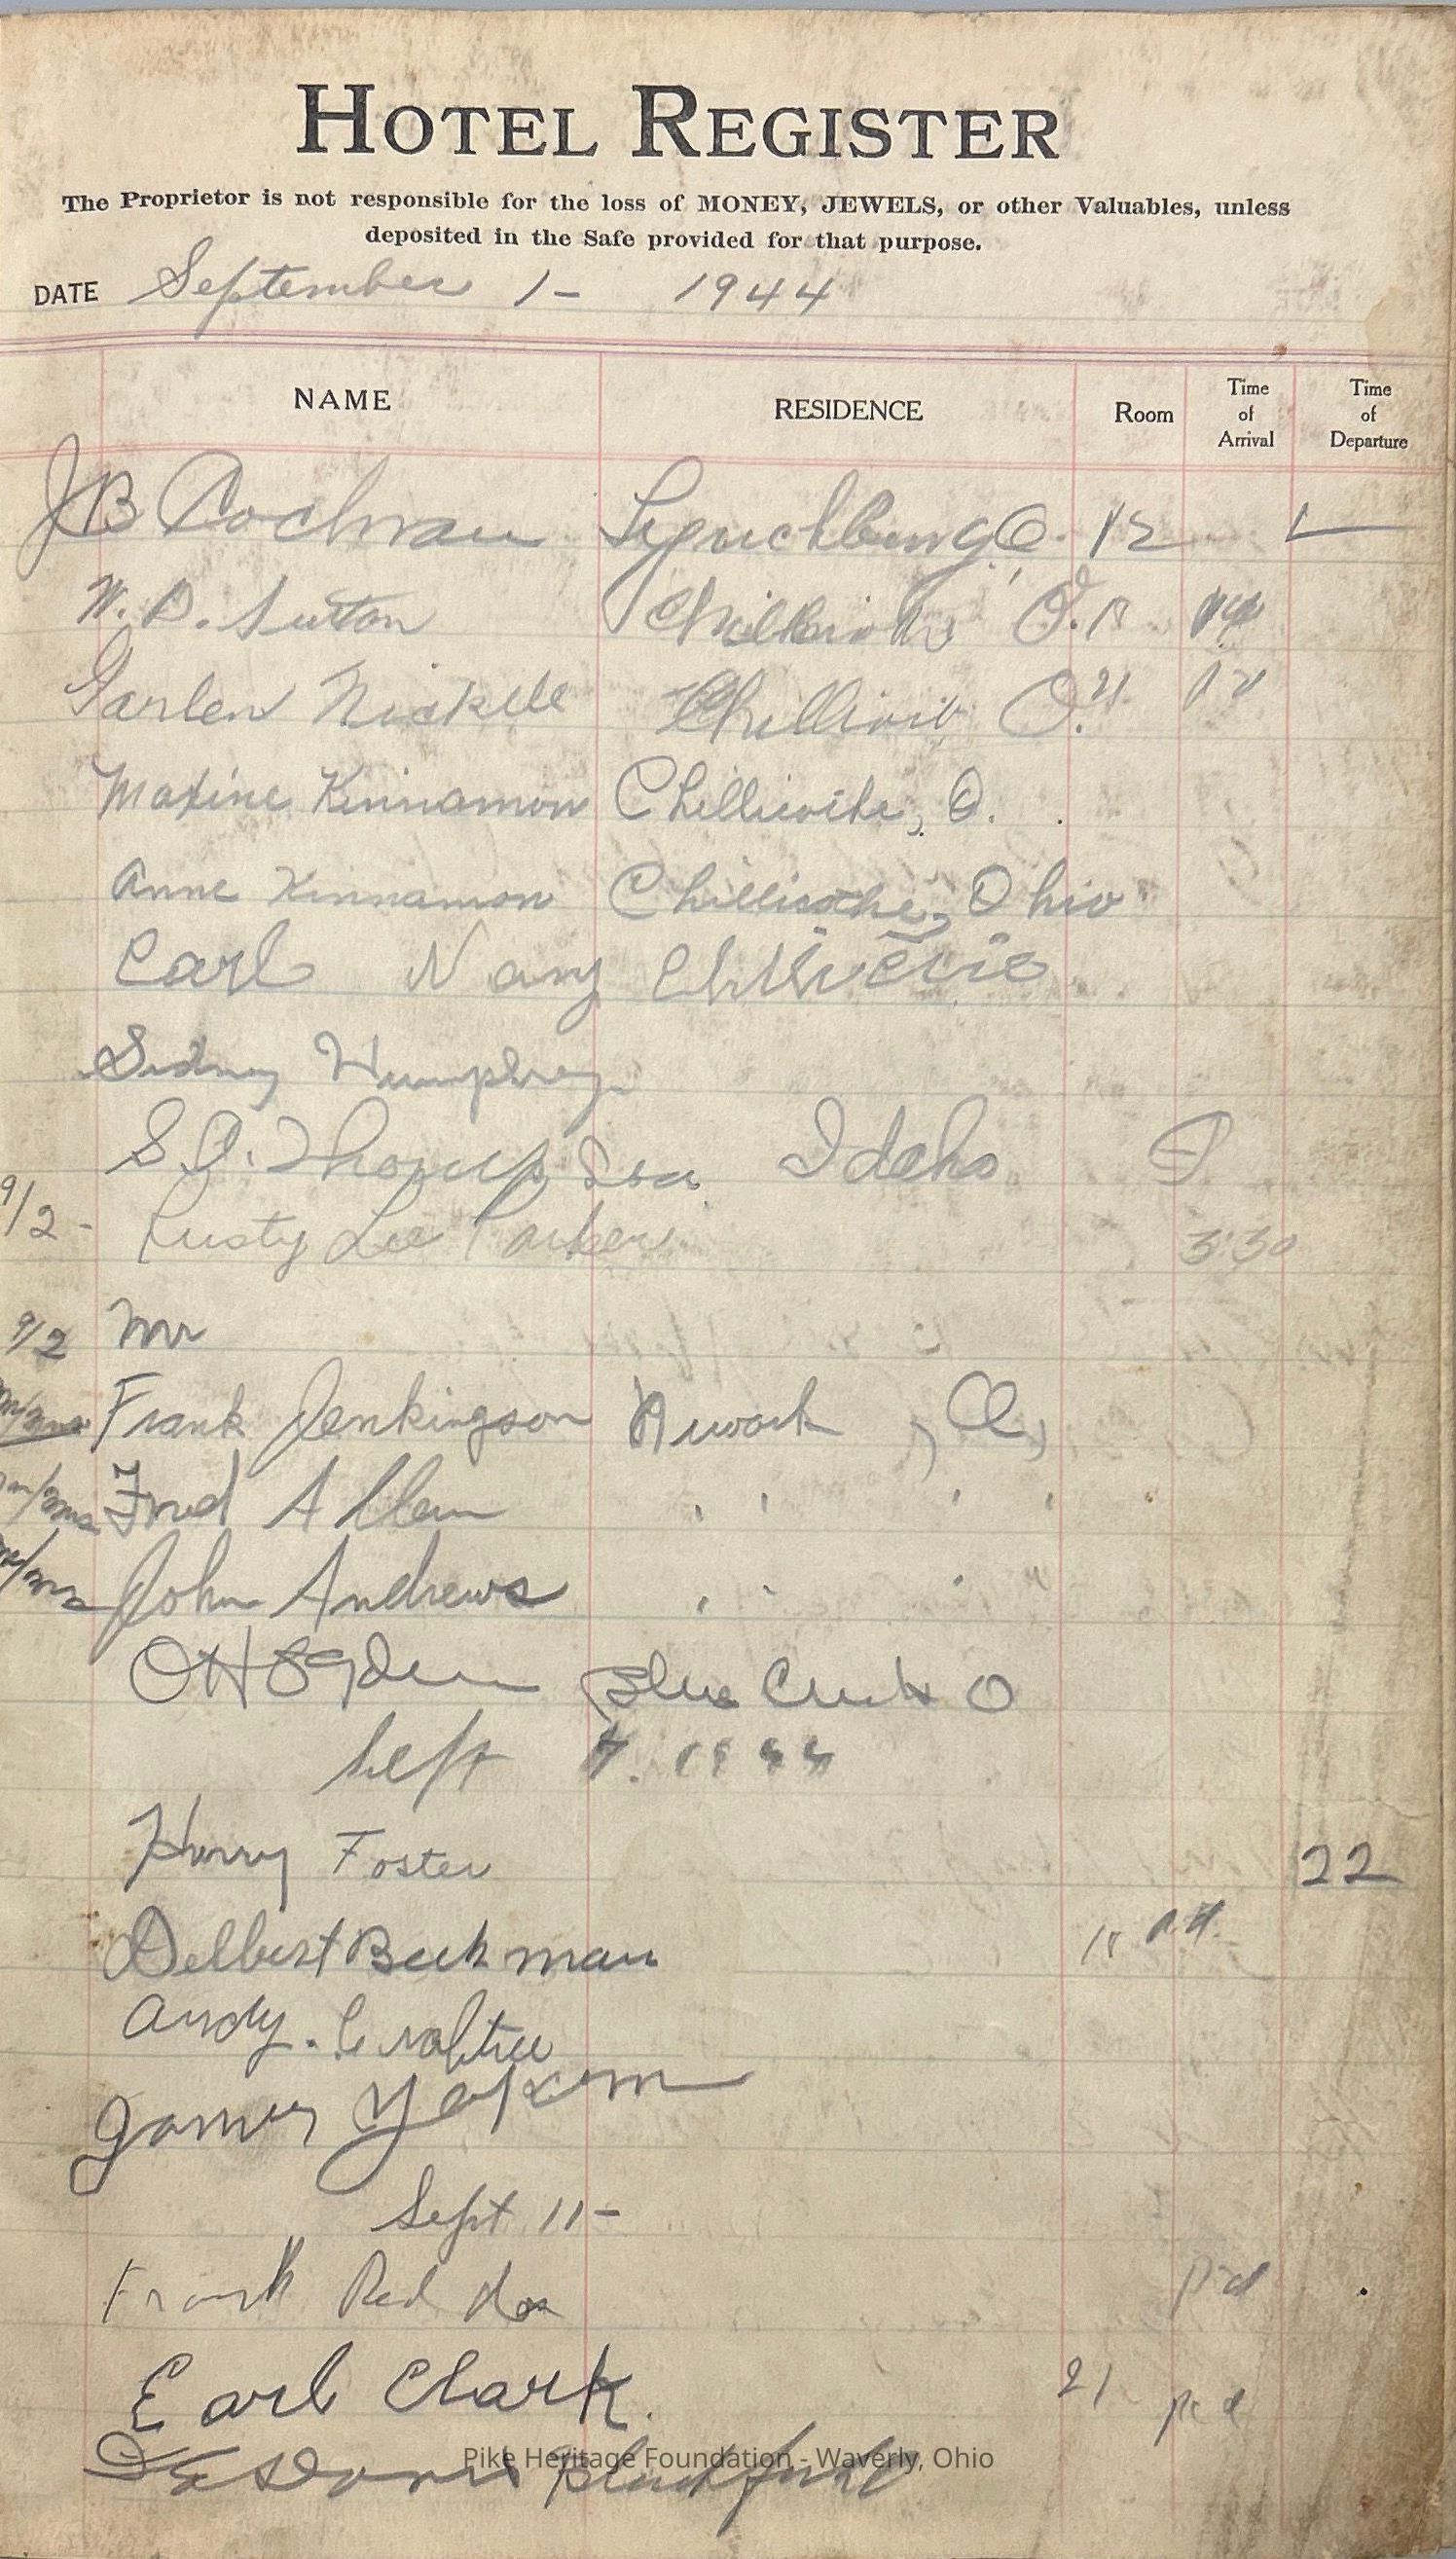 HOTEL REGISTER
The Proprietor is not responsible for the loss of MONEY, JEWELS, or other Valuables, unless
deposited in the Safe provided for that purpose.
DATE September 1- 1944
NAME RESIDENCE Room Time of Arrival Time of Departure
JB Cochran Lynchburg, O. 12
W. D. Sutton O.
Garlen Nickell O. 21 pd
Maxine Kinnamon Chillicothe, O.
Anne Kinnamon Chillicothe, Ohio
Carl
Sidney Humphrey
S. O. Thompson Idaho
9/2- Rusty Lee Parker 3:30
9/2 Mr
Frank Jenkingson Newark, O,
Fred Allen " "
John Andrews " "
OH Ogden Blue Creek O
Left
Harry Foster 22
Delbert Beekman pd.
Andy. Crabtree
James Yoakem
Sept 11-
Frank pd
Earl Clark. 21 pd
Pike Heritage Foundation - Waverly, Ohio